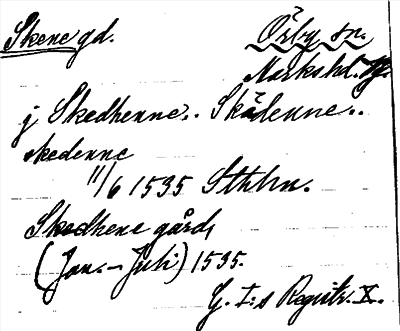 Skene gd. Örby sn.
Marks hd. Vg.
j Skedhenne.. Skädenne..
skedenne
11/6 1535 Sthlm.
Skedhene gård,
(Jan.-Juli) 1535.
G. I:s Registr. X.